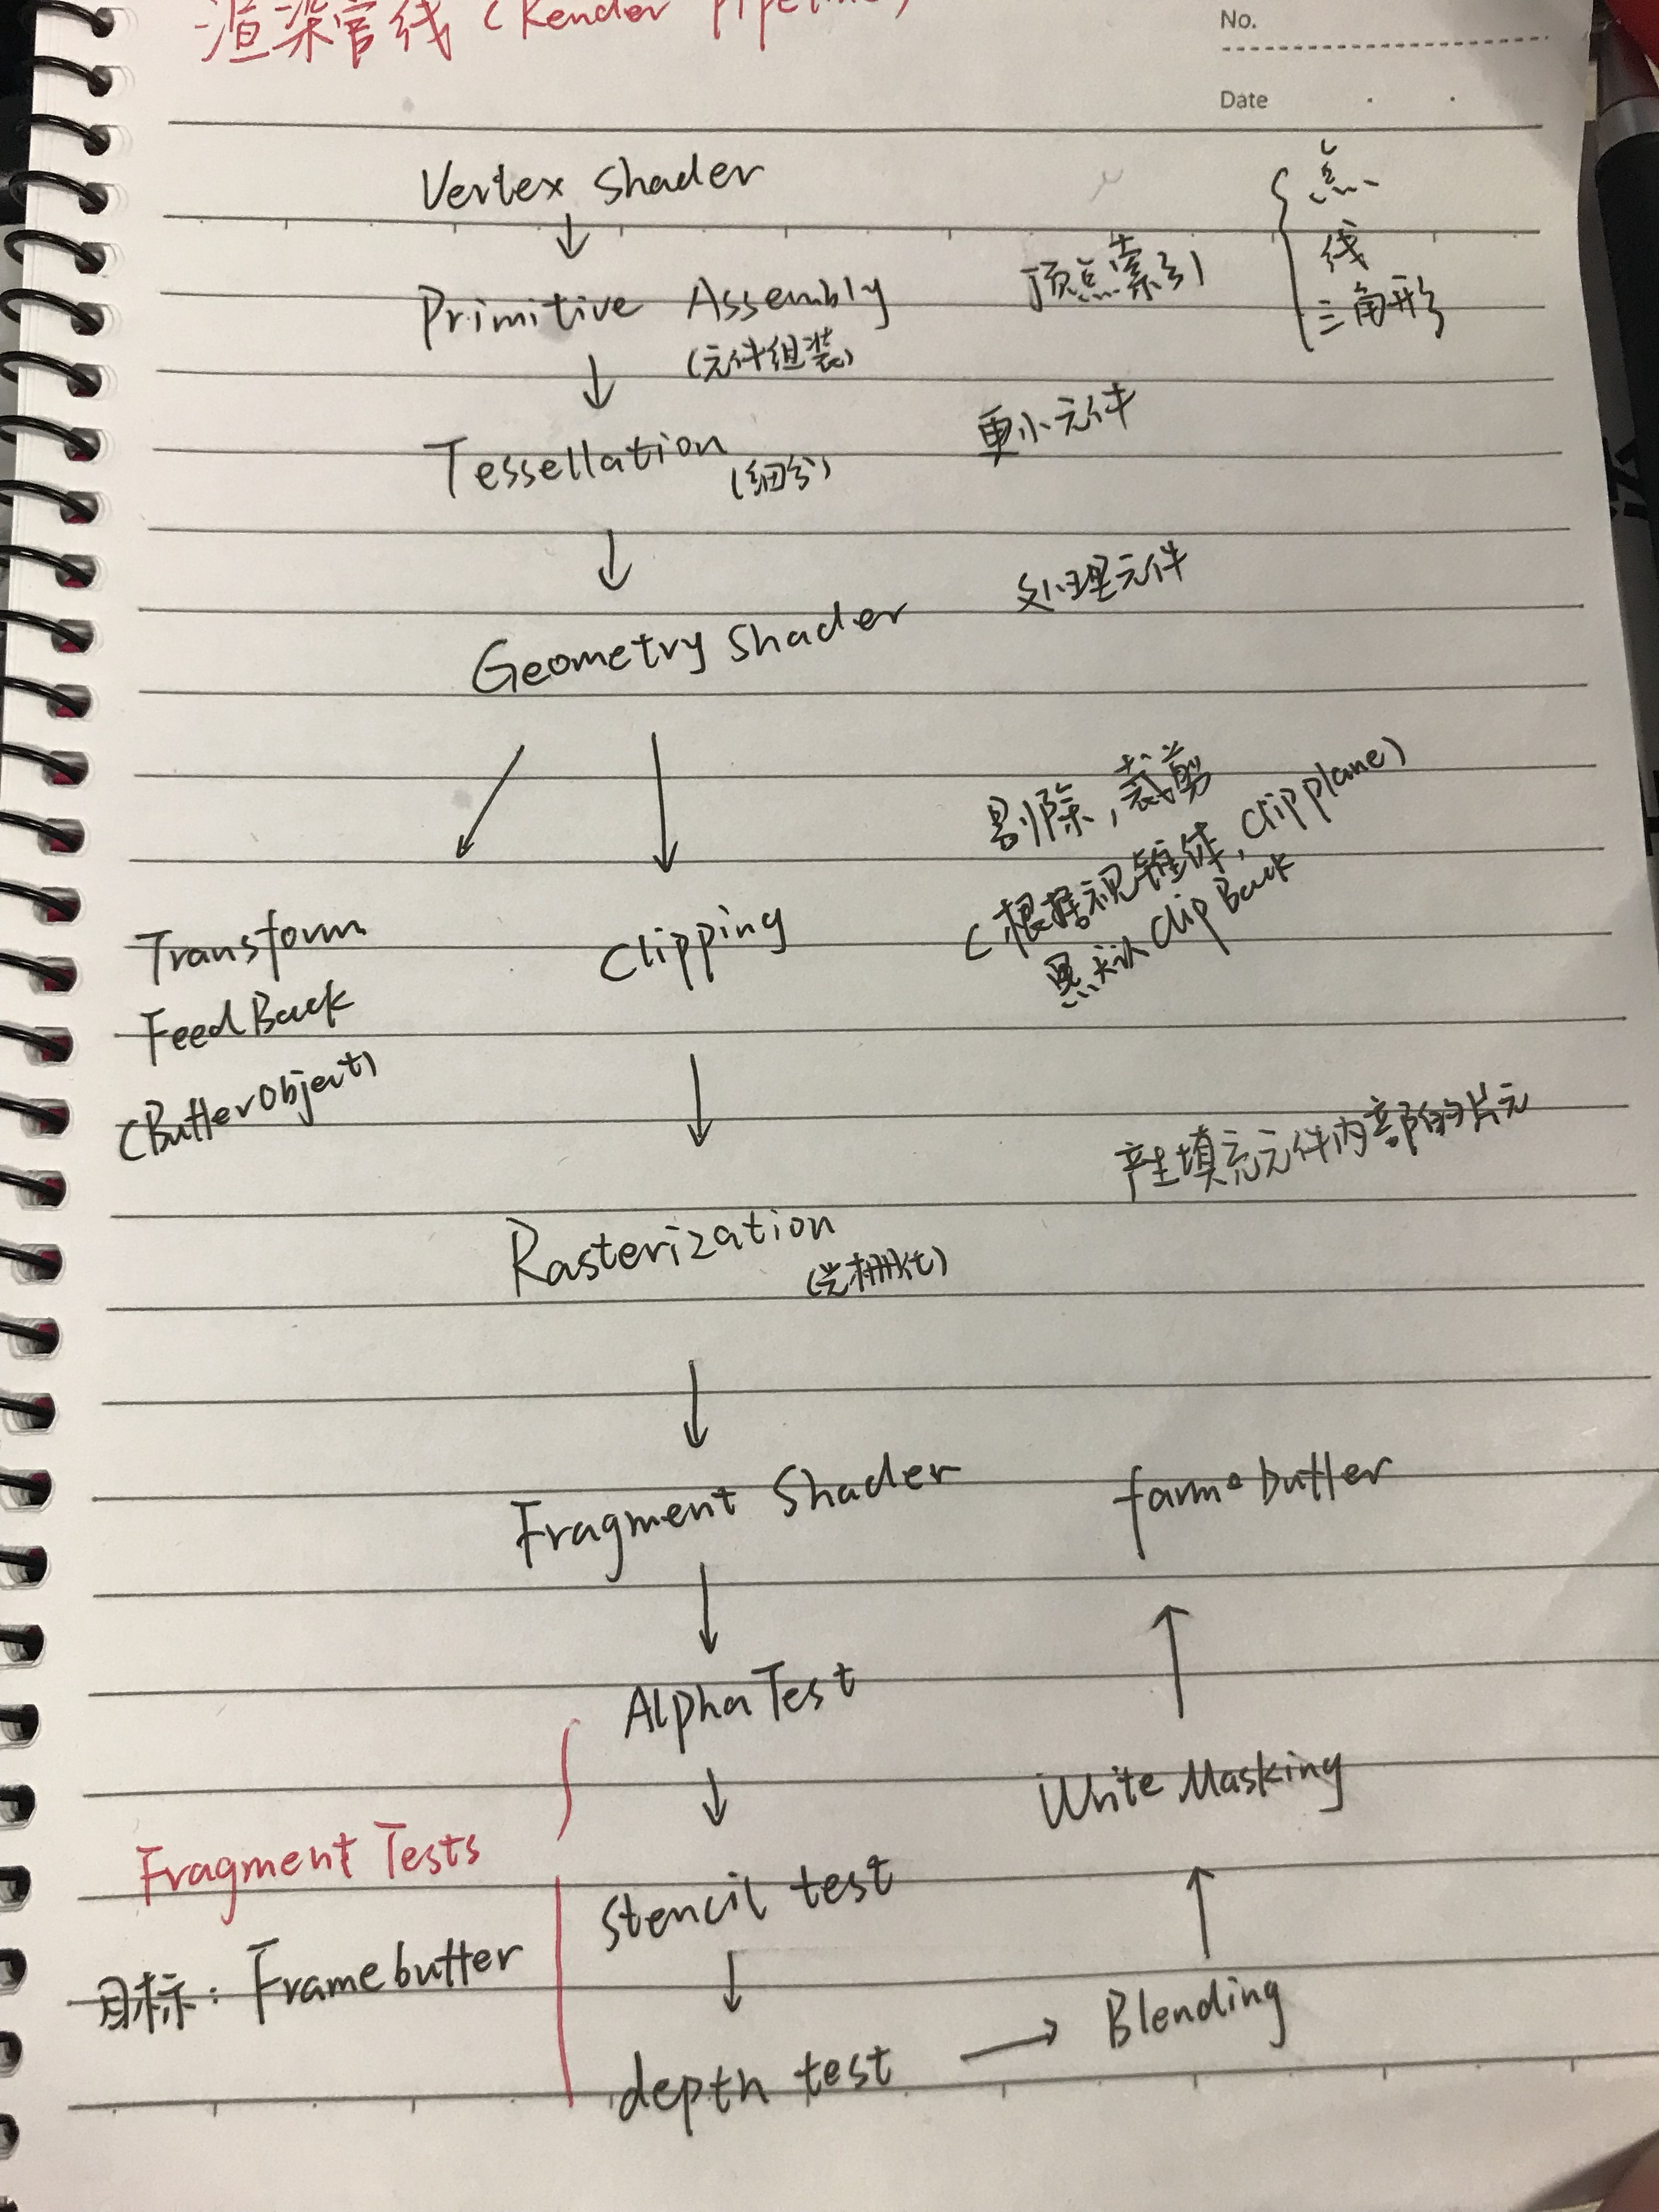 渲染管线 (Render Pipeline)
No.
Date
Vertex Shader
Primitive Assembly
(元件组装)
顶点索引
点
线
三角形
Tessellation
(细分)
更小元件
Geometry Shader
处理元件
Transform
FeedBack
(Butter Object)
Clipping
剔除,裁剪
(根据视锥体, clip plane)
默认 clip Back
Rasterization
(光栅化)
产生填充元件内部的片元
Fragment Shader
farmebutter
Alpha Test
Write Masking
Fragment Tests
Stencil test
目标: Framebutter
depth test
Blending